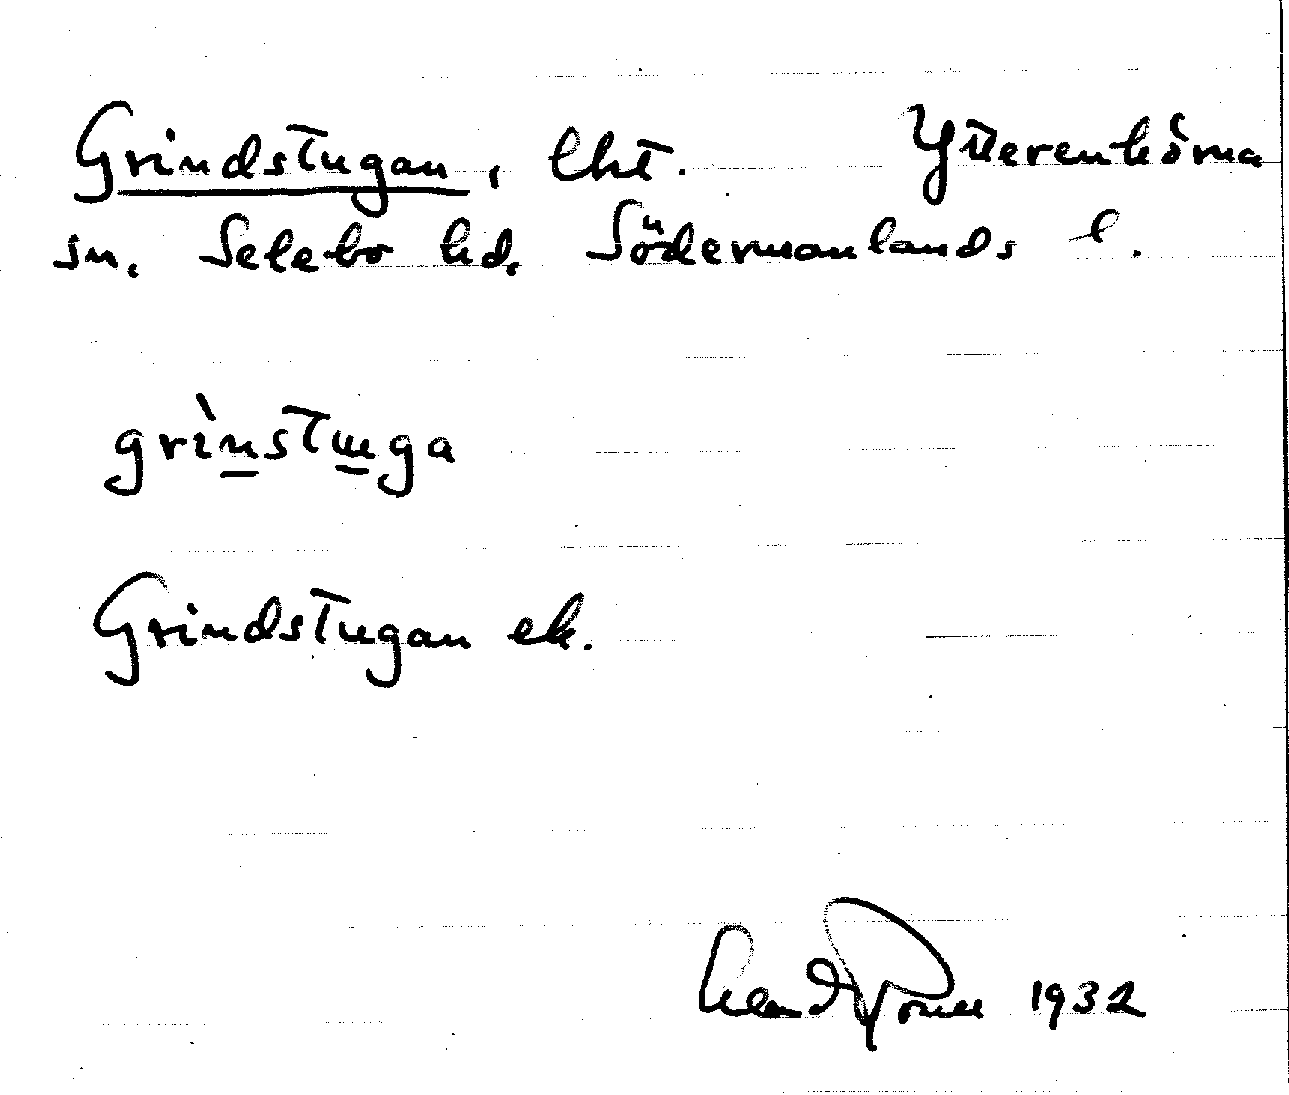 Grindstugan, lht. Ytterenhörna
sn. Selebo hd. Södermanlands l.
grìnstɯga
Grindstugan ek.
1932